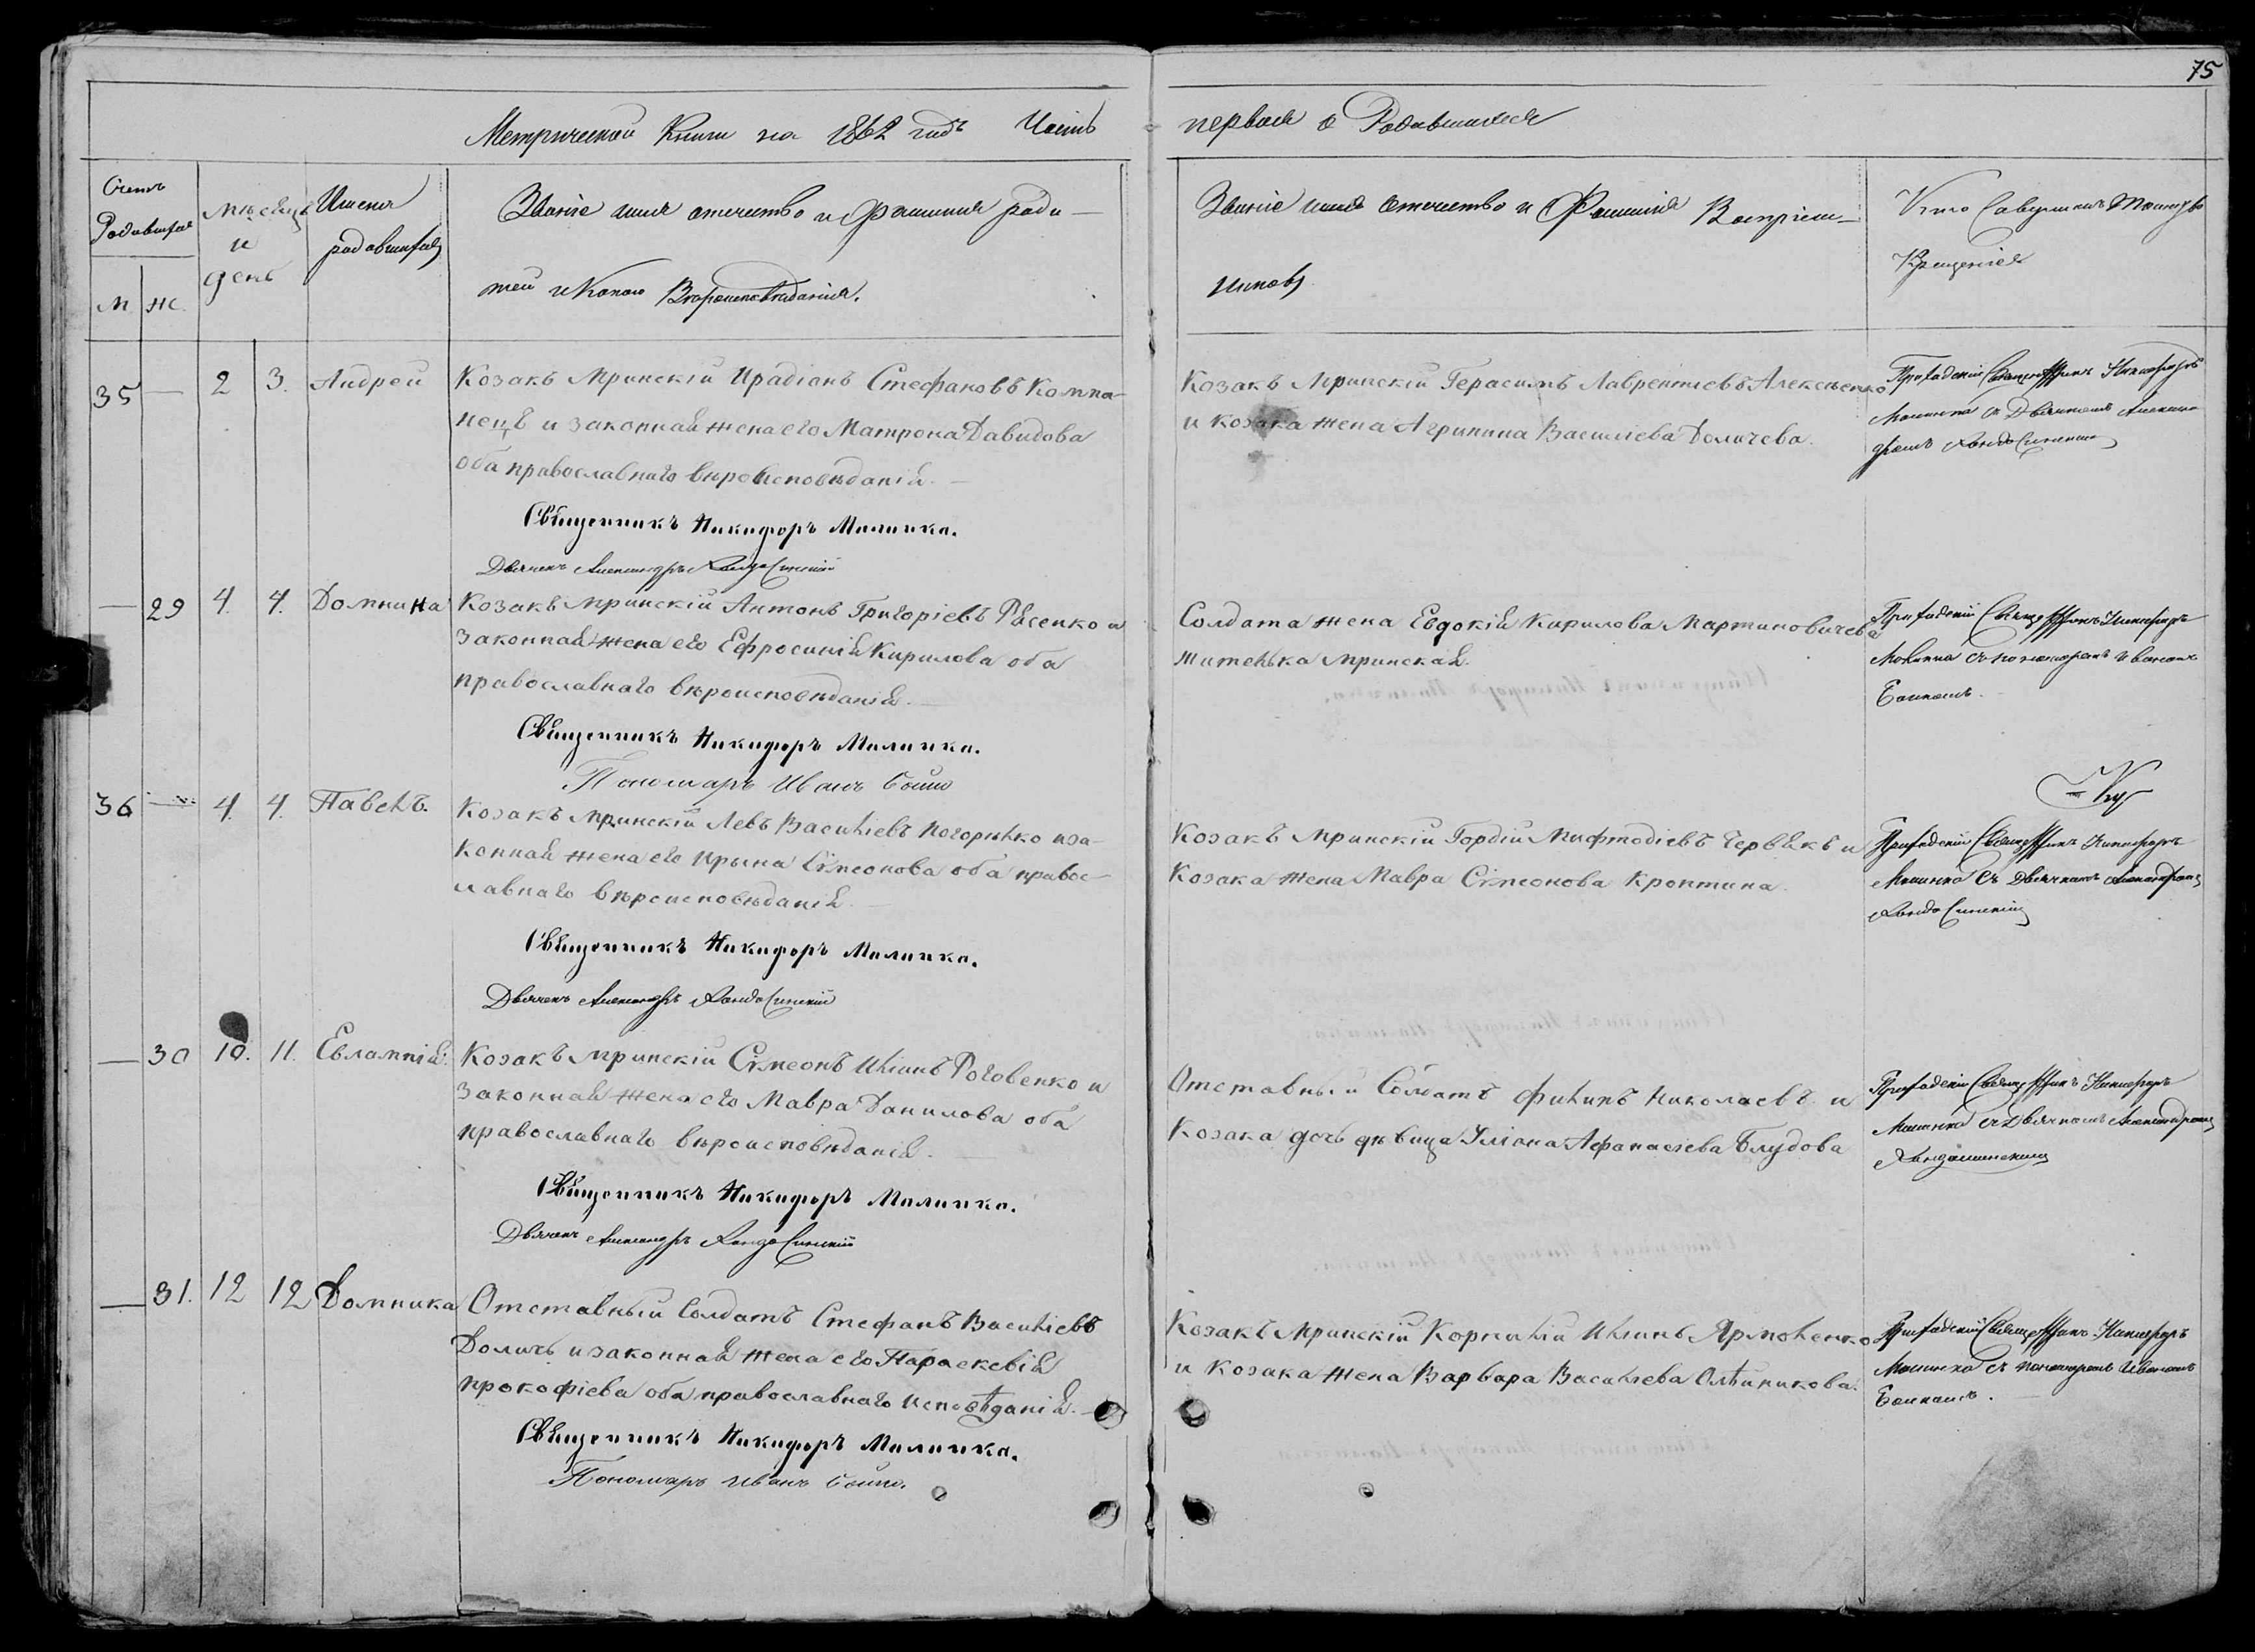 75
Метрической Книги на 1862 годъ Часть первая о Родившихся
Счетъ
Родившихся
м. ж.
мѣсяцъ
и
день
Имена
родившихся
Званіе имя отечество и Фамилія роди-
тей и какого Вероисповѣданія.
Званіе имя отечество и Фамилія Воспріем-
никовъ
Кто Совершилъ Таинство
Крещенія
35 — 2 3. Андрей
Козакъ Мринскій Ирадіонъ Стефановъ Компа-
нецъ и законная жена его Матрона Давидова
оба православнаго вѣроисповѣданія. —
Священникъ Никифоръ Малинка.
Дьячекъ Александръ
Козакъ Мринскій Герасимъ Лаврентіевъ Алексѣенко
и козака жена Агрипина Василіева Доличева.
Приходскій Священникъ Никифоръ
Малинка съ Дьячкомъ Алексан
дромъ
— 29 4. 4. Домнина
Козакъ Мринскій Антонъ Григоріевъ Рясенко и
законная жена его Ефросинія Кирилова оба
православнаго вѣроисповѣданія. —
Священникъ Никифоръ Малинка.
Пономарь Иванъ Бойко
Солдата жена Евдокія Кирилова Мартиновичева
жителька мринская.
Приходскій Священникъ Никифоръ
Малинка съ пономаремъ Иваномъ
Бойкомъ.
36 — 4. 4. Павелъ.
Козакъ Мринскій Левъ Василіевъ Погорѣлко и за-
конная жена его Ирына Сѵмеонова оба правос-
лавнаго вѣроисповѣданія. —
Священникъ Никифоръ Малинка.
Дьячекъ Александръ
Козакъ Мринскій Гордій Мифтодіевъ Червякъ и
Козака жена Мавра Сѵмеонова Кроптина.
Приходскій Священникъ Никифоръ
Малинка съ Дьячкомъ Александромъ
— 30 10. 11. Евлампія.
Козакъ Мринскій Сѵмеонъ Иліинъ Роговенко и
законная жена его Мавра Данилова оба
православнаго вѣроисповѣданія. —
Священникъ Никифоръ Малинка.
Дьячекъ Александръ
Отставный Солдатъ Филипъ Николаевъ и
Козака дочь дѣвица Уліана Афанасіева Блудова
Приходскій Священникъ Никифоръ
Малинка съ Дьячкомъ Александромъ
— 31. 12 12 Домника
Отставный Солдатъ Стефанъ Василіевъ
Доличъ и законная жена его Параскевія
Прокофіева оба православнаго исповѣданія. —
Священникъ Никифоръ Малинка.
Пономарь Иванъ Бойко.
Козакъ Мринскій Корнилій Иліинъ Ярмоленко
и Козака жена Варвара Василіева Олѣиникова.
Приходскій Священникъ Никифоръ
Малинка съ пономаремъ Иваномъ
Бойкомъ.